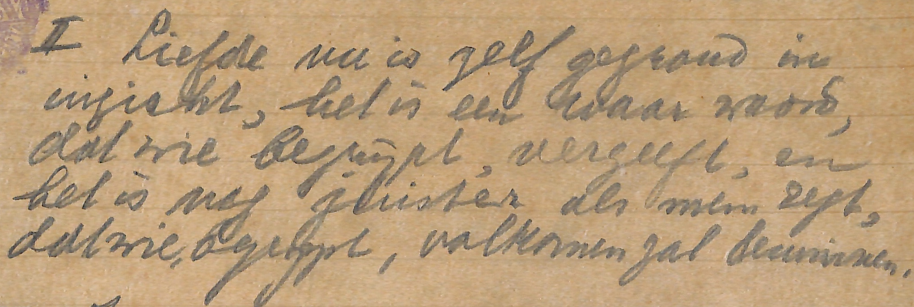 II Liefde nu is zelf gegrond in
inzicht, het is een waar woord,
dat wie begrijpt, vergeeft, en
het is nog juister als men zegt,
dat wie begrijpt, volkomen zal beminnen.